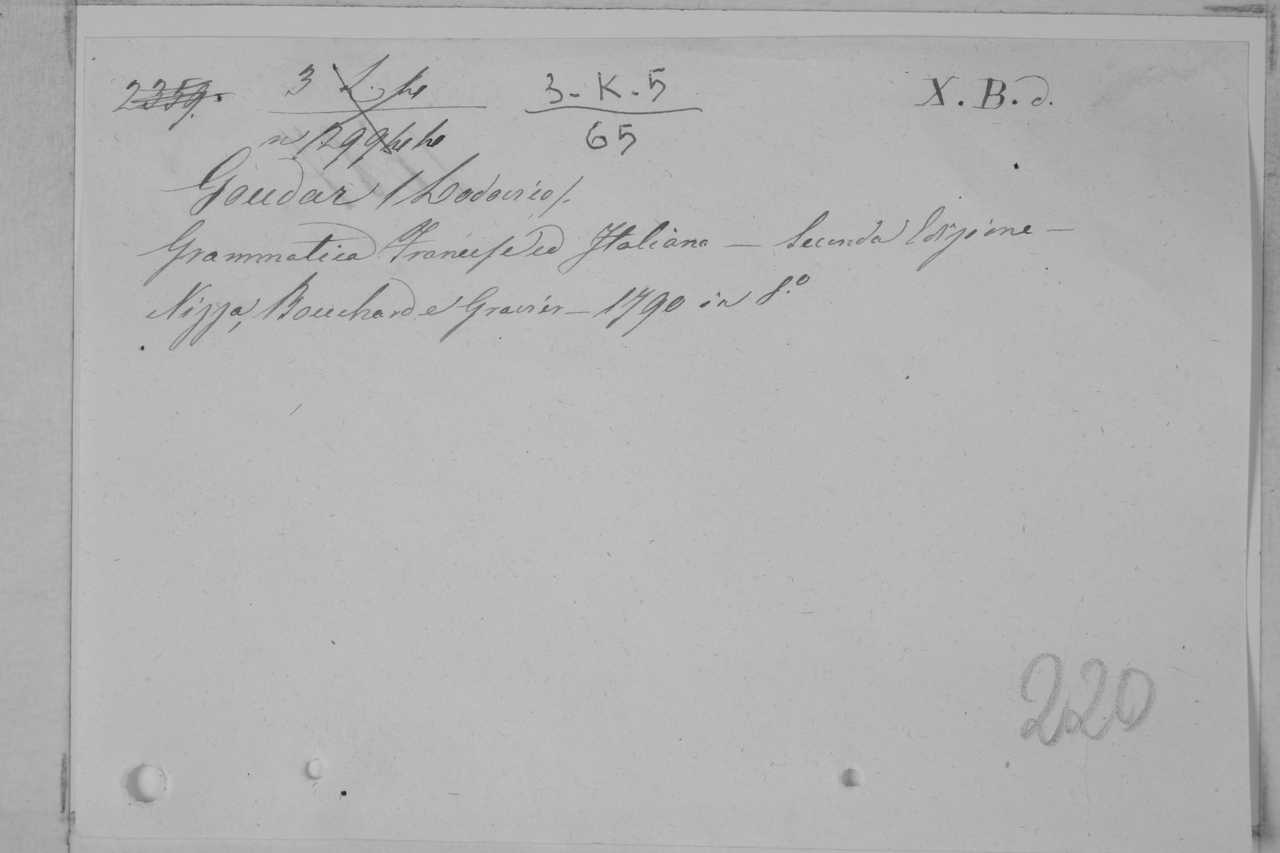 2359. 3 L. 3-K-5 X. B. d.
n 1299 65
Goudar (Lodovico).
Grammatica Francese ed Italiana — Seconda Edizione —
Nizza, Bouchard e Gravier — 1790 in 8.º
220